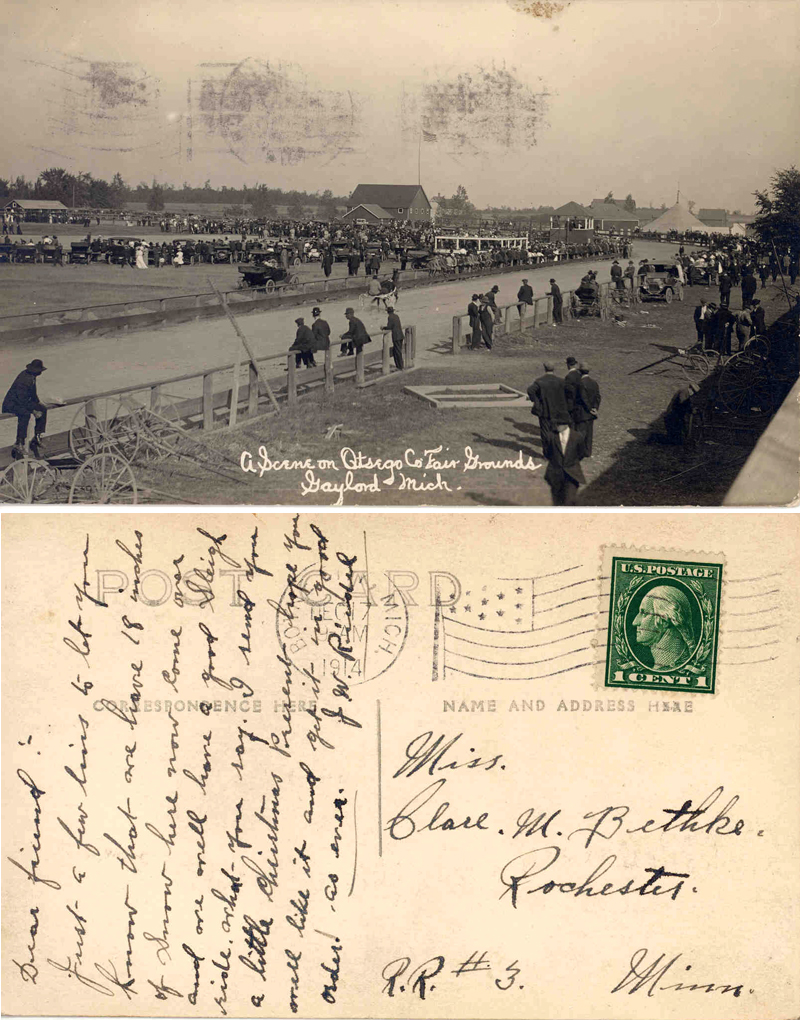 A Scene on Otsego Co Fair Grounds
Gaylord Mich.
POST CARD
CORRESPONDENCE HERE
NAME AND ADDRESS HERE
MICH.
1914
U.S. POSTAGE
1 CENT 1
Dear friend :-
Just a few lines to let you
know that we have 18 inches
of snow here now come over
and we will have a good Sleigh
ride. what you say. I send you
a little Christmas Present hope you
will like it and get it in good
order! as ever. J. W.
Miss.
Clare. M. Bethke.
Rochester.
R.R. # 3. Minn.